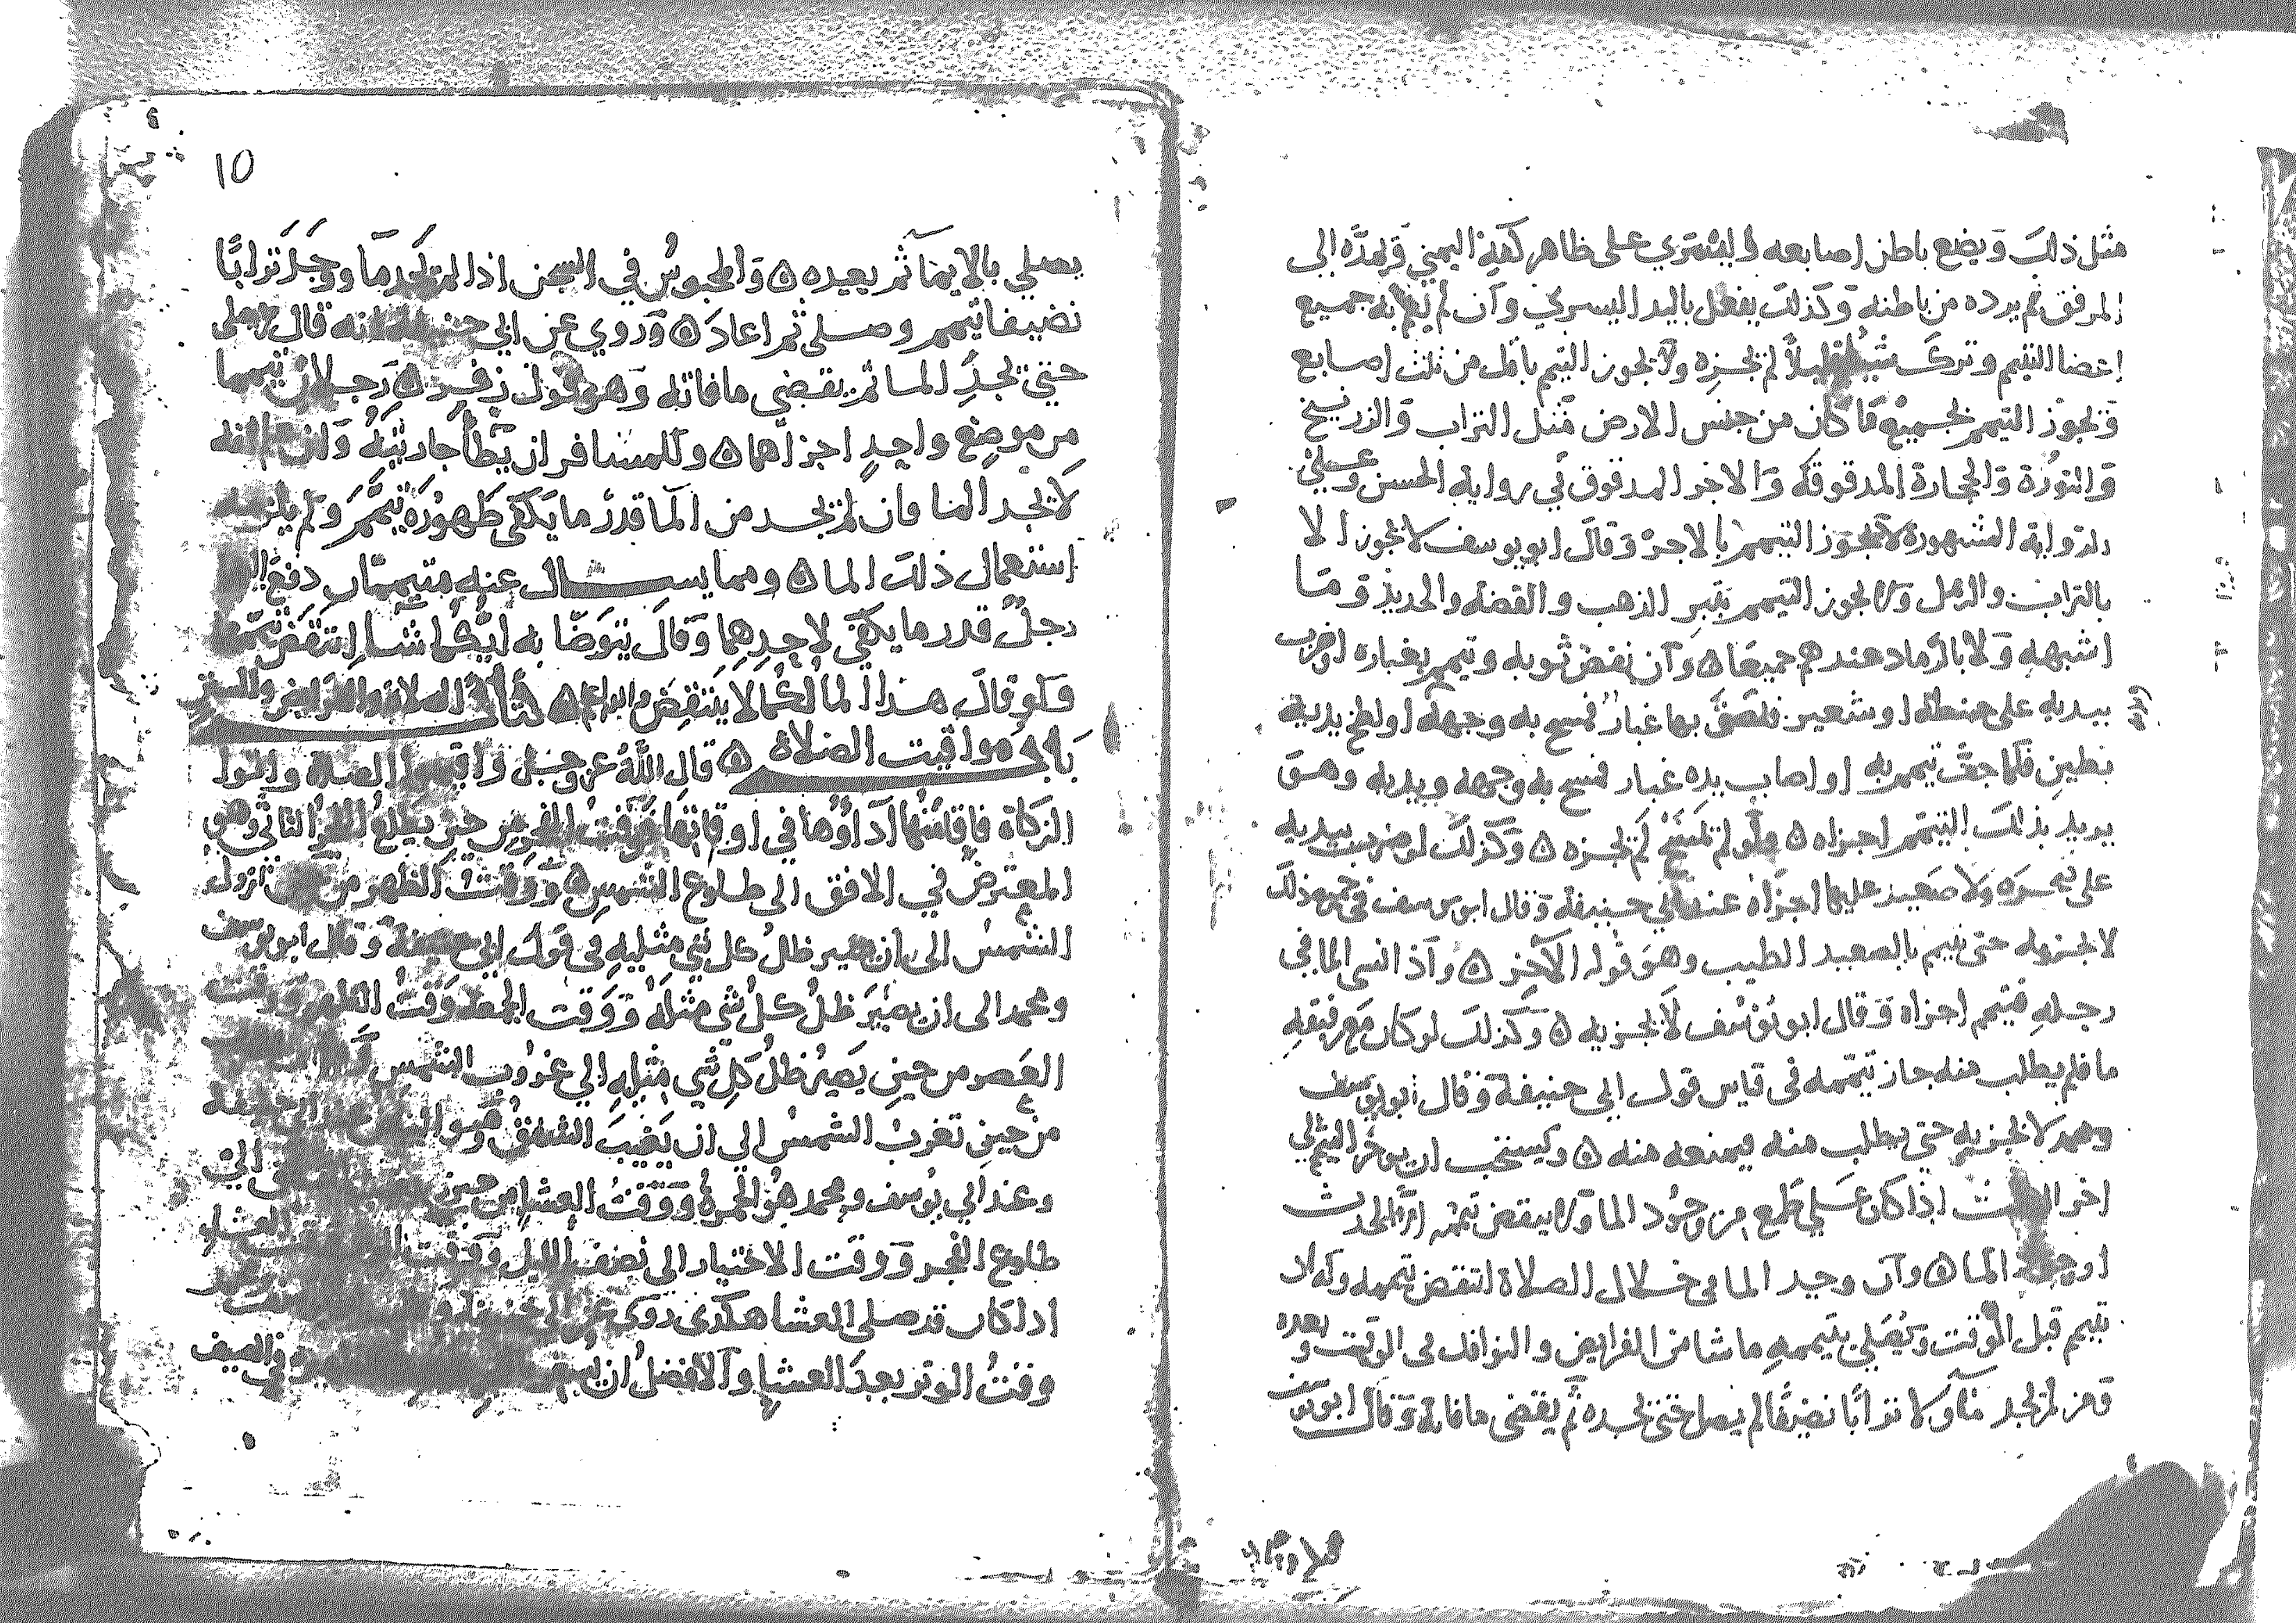 مثل ذلك ويضع باطن اصابعه اليسري على ظاهر كفه اليمني ويمده الى
المرفق ثم يرده من باطنه وكذلك يفعل باليد اليسري وان لم يعم به جميع
اعضا التيمم وترك شيا قليلا لم يجزه ولا يجوز التيمم باقل من ثلث اصابع
ويجوز التيمم بجميع ما كان من جنس الارض مثل التراب والزرنيخ
والنورة والحجارة المدقوقة والاجر المدقوق في رواية الحسن وعلي
الرواية المشهورة لا يجوز التيمم بالاجر وقال ابو يوسف لا يجوز الا
بالتراب والرمل ولا يجوز التيمم بتبر الذهب والفضة والحديد وما
اشبهه ولا بالرماد عندهم جميعا ٥ وان نفض ثوبه وتيمم بغباره او ضرب
بيديه على حنطة او شعير فلصق بها غبار فمسح به وجهه او لطخ يديه
بطين فلما جف تيمم به او اصاب يده غبار فمسح به وجهه ويديه وهو
يريد بذلك التيمم اجزاه ٥ ولو لم يمسح لم يجزه ٥ وكذلك لو ضرب بيديه
على صخره ولا صعيد عليها اجزاه عند ابي حنيفة وقال ابو يوسف في جميع ذلك
لا يجزيه حتى يتيمم بالصعيد الطيب وهو قوله الآخر ٥ واذا نسى الما في
رحله فتيمم اجزاه وقال ابو يوسف لا يجزيه ٥ وكذلك لو كان مع رفيقه
ما فلم يطلب منه جاز تيممه في قياس قول ابي حنيفة وقال ابو يوسف
ومحمد لا يجزيه حتى يطلب منه فيمنعه منه ٥ ويستحب ان يوخر التيمم الي
اخر الوقت اذا كان علي طمع من وجود الما ولا ينقض تيممه الا الحدث
او وجود الما ٥ وان وجد الما في خلال الصلاة انتقض تيممه وله ان
يتيمم قبل الوقت ويصلي بتيممه ما شا من الفرايض والنوافل في الوقت وبعده
ومن لم يجد ما ولا ترابا نضيفا لم يصل حتى يجده ثم يقضى ما فاته وقال ابو يوسف
10
يصلي بالايما ثم يعيده ٥ والمحبوس في السجن اذا لم يجد ما ووجد ترابا
نضيفا تيمم وصلى ثم اعاد ٥ وروي عن ابي حنيفة انه قال لا يصلى
حتي يجد الما ثم يقضي ما فاته وهو قول زفر ٥ رجلان تيمما
من موضع واحد اجزاهما ٥ وللمسافر ان يطأ جاريته وان علم انه
لا يجد الما فان لم يجد من الما قدر ما يكفي طهوره تيمم ولم يلزمه
استعمال ذلك الما ٥ ومما يسال عنه متيممان دفع اليهما
رجل قدر ما يكفي لاحدهما وقال يتوضا به ايكما شا انتقض تيممهما
ولو قال هذا الما لكما لا ينتقض ٥ كتاب الصلاة والفرايض والسنن
باب مواقيت الصلاة ٥ قال الله عز وجل واقيموا الصلاة واتوا
الزكاة فاقامتها اداؤها في اوقاتها فوقت الفجر من حين يطلع الفجر الثاني وهو
المعترض في الافق الى طلوع الشمس ٥ ووقت الظهر من حين تزول
الشمس الى ان يصير ظل كل شي مثليه في قول ابي حنيفة وقال ابو يوسف
ومحمد الى ان يصير ظل كل شي مثله ووقت الجمعة وقت الظهر ووقت
العصر من حين يصير ظل كل شي مثليه الي غروب الشمس
من حين تغرب الشمس الى ان يغيب الشفق وهو البياض عند ابي حنيفة
وعند ابي يوسف ومحمد هو الحمرة ووقت العشا من حين الي
طلوع الفجر ووقت الاختيار الى نصف الليل ووقت العشاء
اذا كان قد صلى العشا هكذى روى عن ابي حنيفة
وقت الوتر بعد العشا والافضل ان وفي الصيف